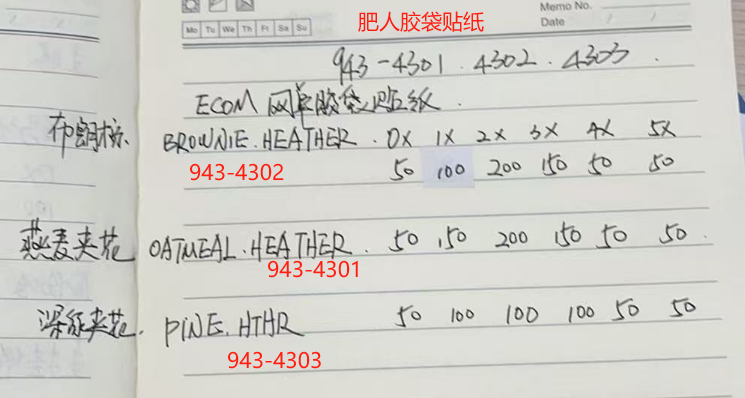 肥人胶袋贴纸
Memo No.
Mo Tu We Th Fr Sa Su
Date / /
943-4301. 4302. 4303.
ECOM 网单胶袋贴纸.
布朗棕. BROWNIE.HEATHER. 0X 1X 2X 3X 4X 5X
943-4302
50 100 200 150 50 50
燕麦夹花 OATMEAL.HEATHER. 50 150 200 150 50 50.
943-4301
深绿夹花. PINE.HTHR 50 100 100 100 50 50
943-4303